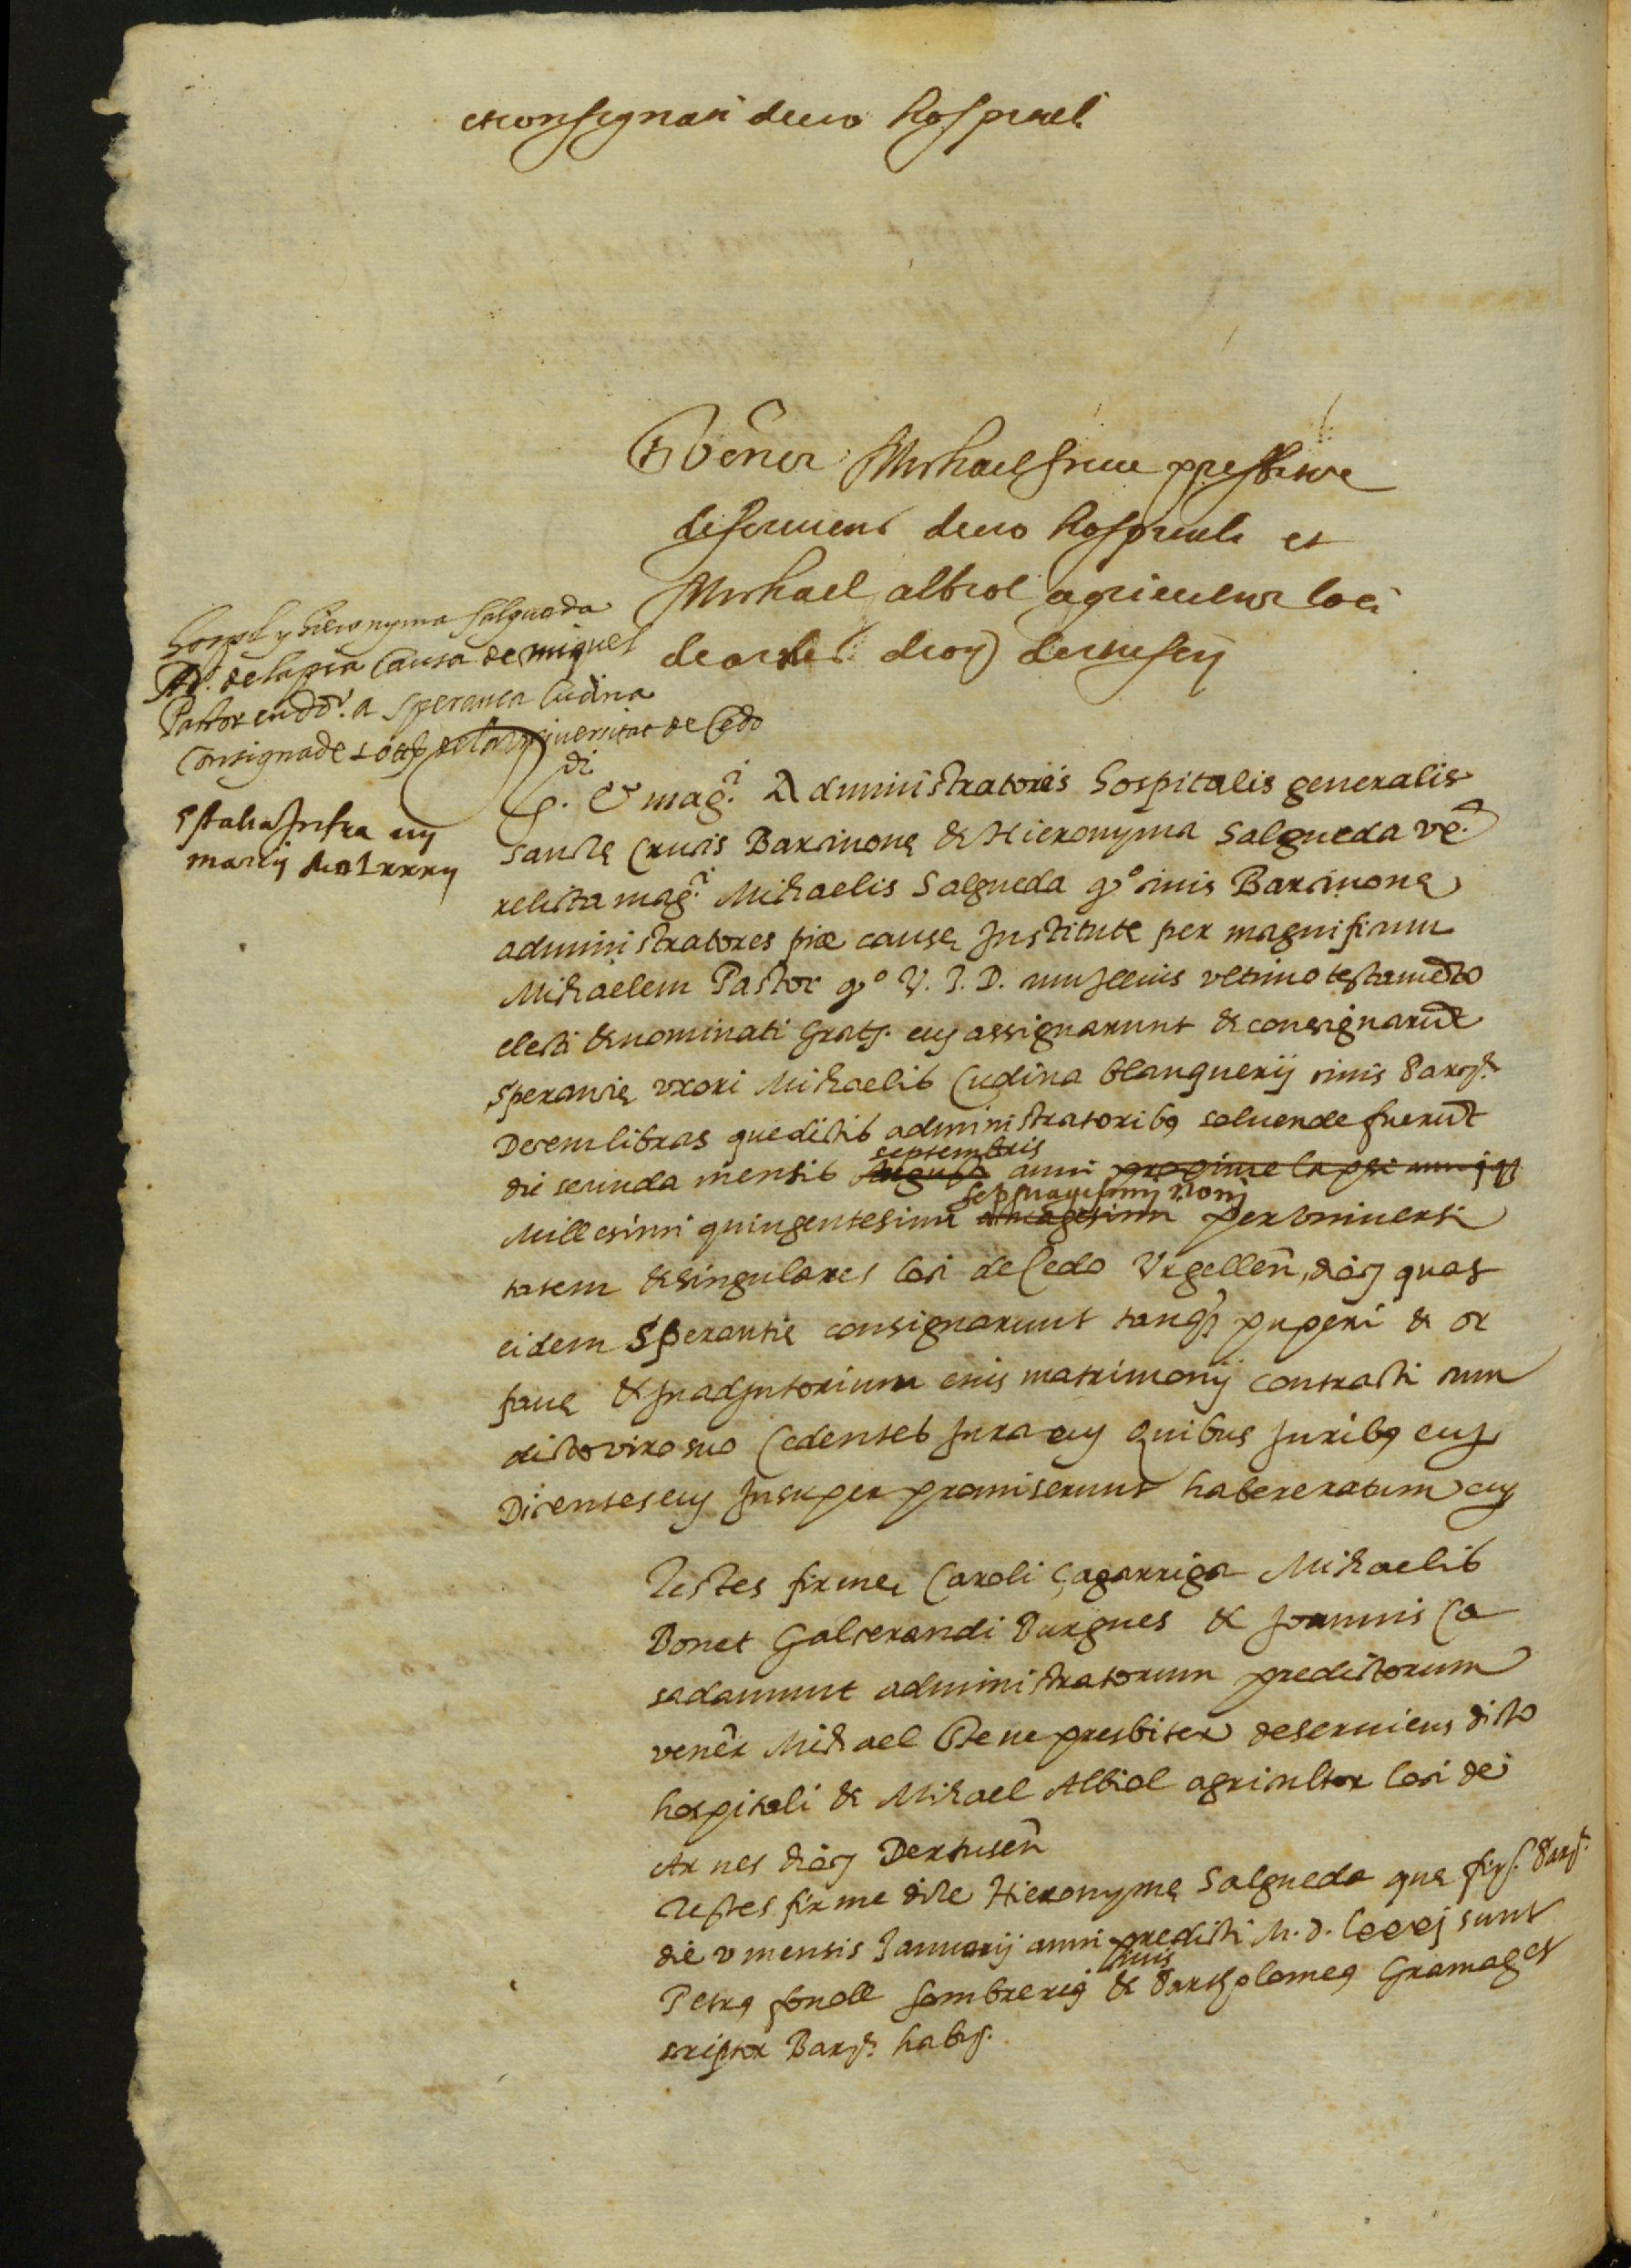 et consignari dicto hospitali
Vener Michael frene presbiter
deserviens dicto hospitali et
Michael albiol agricultor loci
de arnes dioc dertusen
hospl y hieronyma salgueda
Ad. de la pia Causa de miquel
Pastor en dor. a speransa Cudina
Consignade sobre la universitat de Cedo
Esta lia infra
marcij
di
S. & mag.ci Administratores hospitalis generalis
sancte Crucis Barcinone & Hieronyma Salgueda
relicta mag.ci Michaelis Salgueda q.o civis Barcinone
administratores pie cause Institute per magnificum
Michaelem Pastor q.o V. J. D. cum illius ultimo testamento
electi & nominati Grats. etc assignarunt & consignarunt
Sperancie uxori Michaelis Cudina blanquerij civis Barc.e
Decem libras que dictis administratoribus soluende fuerunt
septembris
die secunda mensis Augusti anni proxime lapsi
septuagesimi noni
Millesimi quingentesimi octuagesimi per universi
tatem & singulares loci de Cedo Urgellen. dioc quas
eidem Sperantie consignarunt tanq. puperi & or
fane & In adjutorium eius matrimonij contracti cum
dicto viro suo Cedentes Jura etc Quibus Juribus etc
Dicentes etc Insuper promiserunt habere ratum etc
Testes firme Caroli çagarriga Michaelis
Bonet Galcerandi Burgues & Joannis Ca
sadamunt administratorum predictorum
vener Michael frene presbiter deserviens dicto
hospitali & Michael Albiol agricultor loci de
Arnes dioc Dertusen
Testes firme dicte Hieronyme Salgueda que fir. Barc.
die v mensis Januarij anni predicti M.D.lxxxj sunt
civis
Petrus fonoll sombrerius & Bartholomeus Gramatges
scriptor Barc. habit.